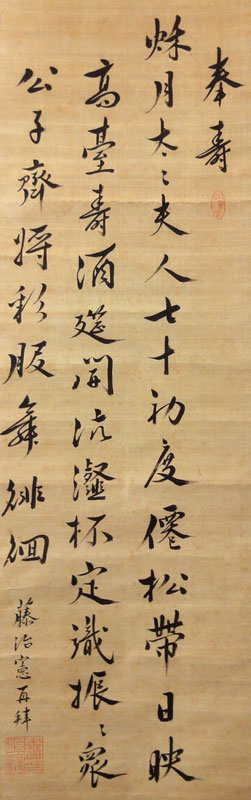 奉寿
秌月太〻夫人七十初度僊松帶日映
高臺寿酒筵開流灔杯定識振〻衆
公子齊將彩服舞徘徊
藤治憲再拜